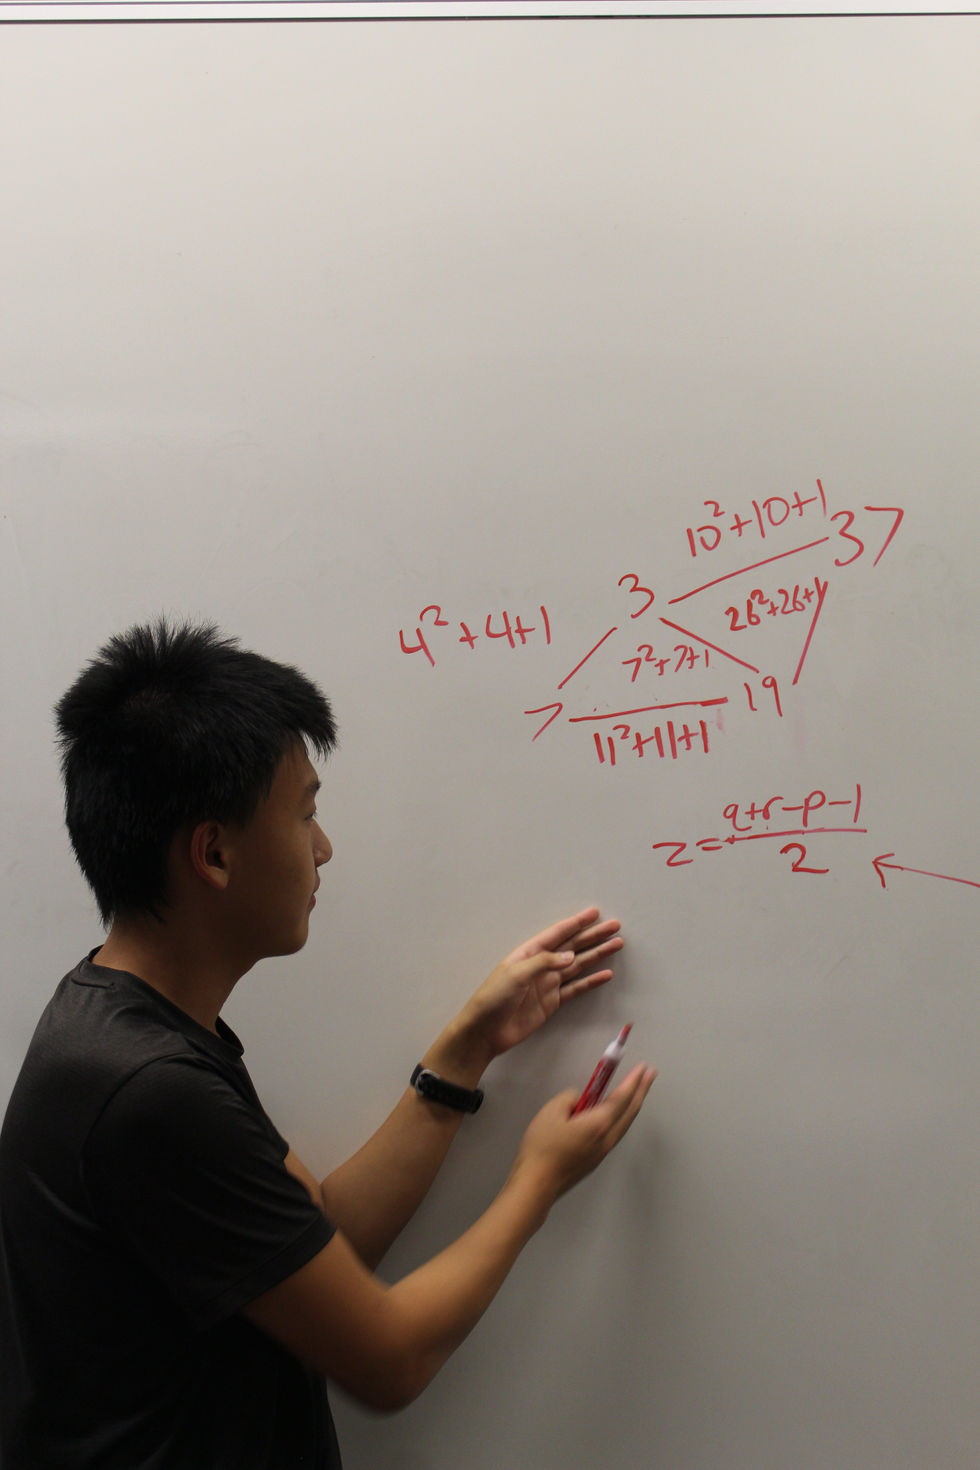 10²+10+1
37
3
26²+26+1
4²+4+1
7²+7+1
7
19
11²+11+1
z=
q+r-p-1
2